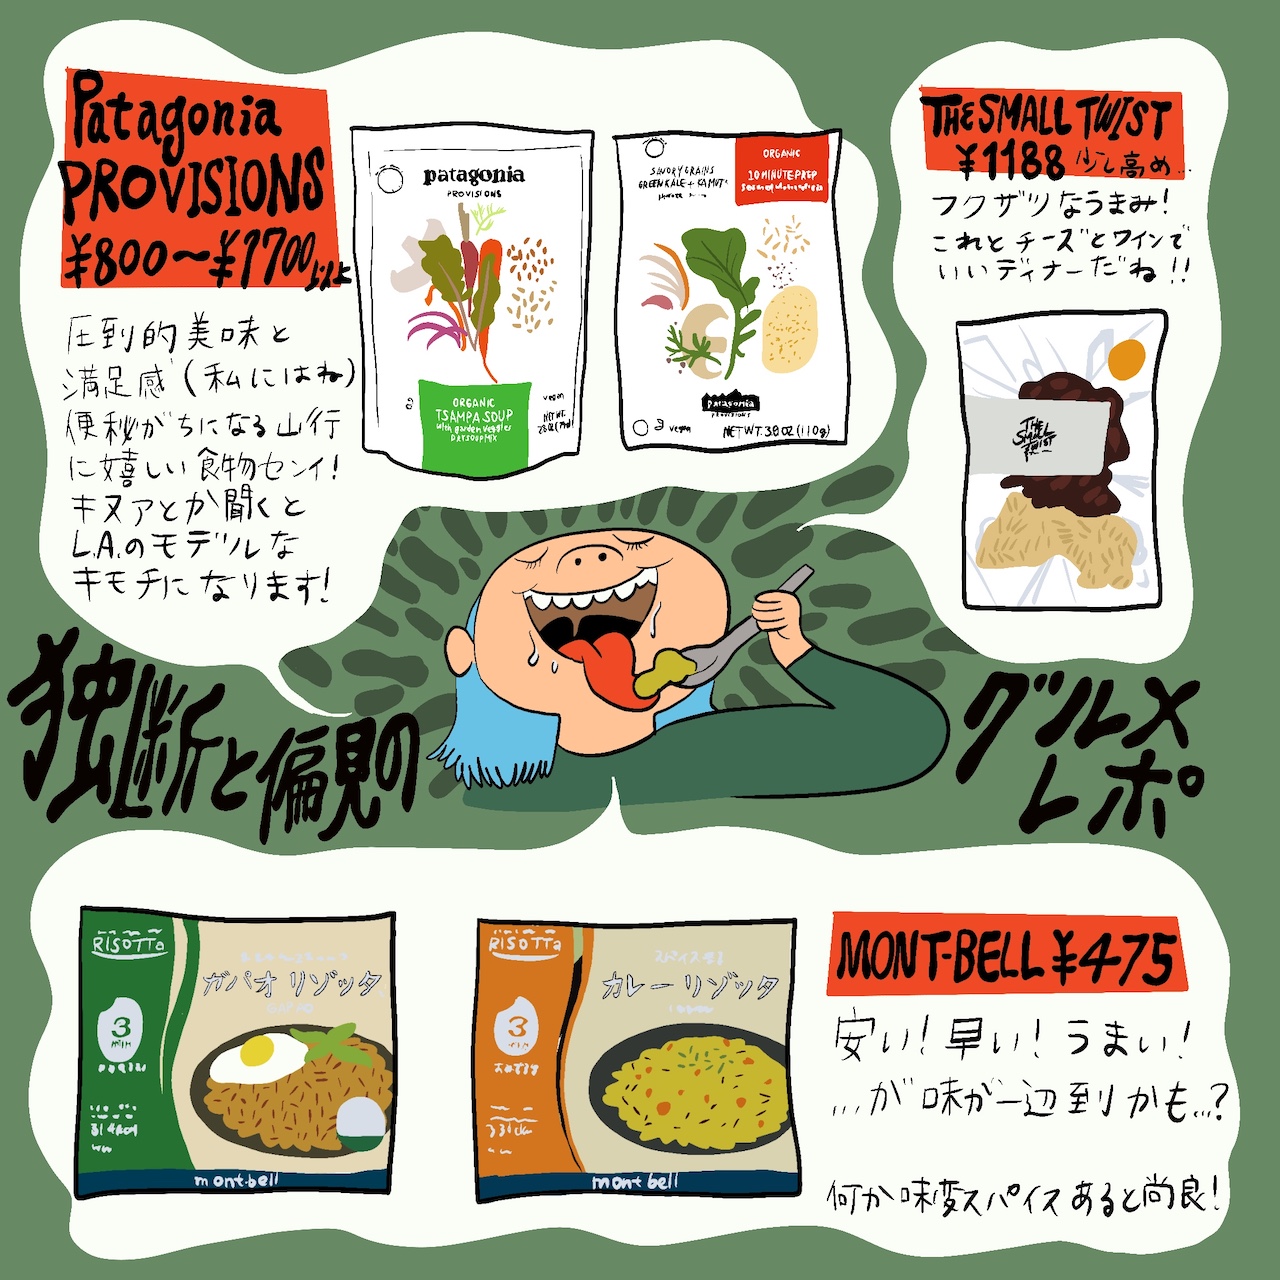 Patagonia
PROVISIONS
¥800〜¥1700以上
圧到的美味と
満足感(私にはね)
便秘がちになる山行
に嬉しい食物センイ!
キヌアとか聞くと
L.A.のモデルな
キモチになります!
patagonia
PROVISIONS
ORGANIC
TSAMPA SOUP
with garden veggies
DRY SOUP MIX
vegan
NET WT.
SAVORY GRAINS
GREEN KALE + KAMUT
ORGANIC
10 MINUTE PREP
patagonia
PROVISIONS
vegan
NET WT. 38 OZ (110g)
THE SMALL TWIST
¥1188 少し高め...
フクザツなうまみ!
これとチーズとワインで
いいディナーだね!!
THE
SMALL
TWIST
独断と偏見の
グルメ
レポ
RISOTTa
ガパオリゾッタ
3
min
mont-bell
RISOTTa
カレーリゾッタ
3
min
mont bell
MONT-BELL ¥475
安い!早い!うまい!
...が味が一辺到かも...?
何か味変スパイスあると尚良!